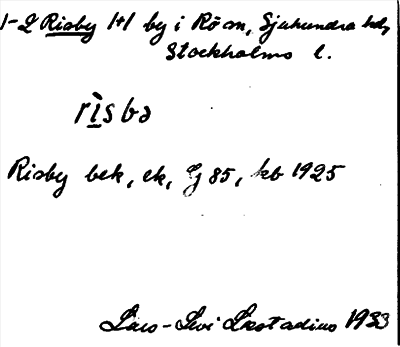 1-2 Risby 1+1 by i Rö sn, Sjuhundra hd,
Stockholms l.
rìsbə
Risby bek, ek, G 85, kb 1925
Lars-Levi Læstadius 1933